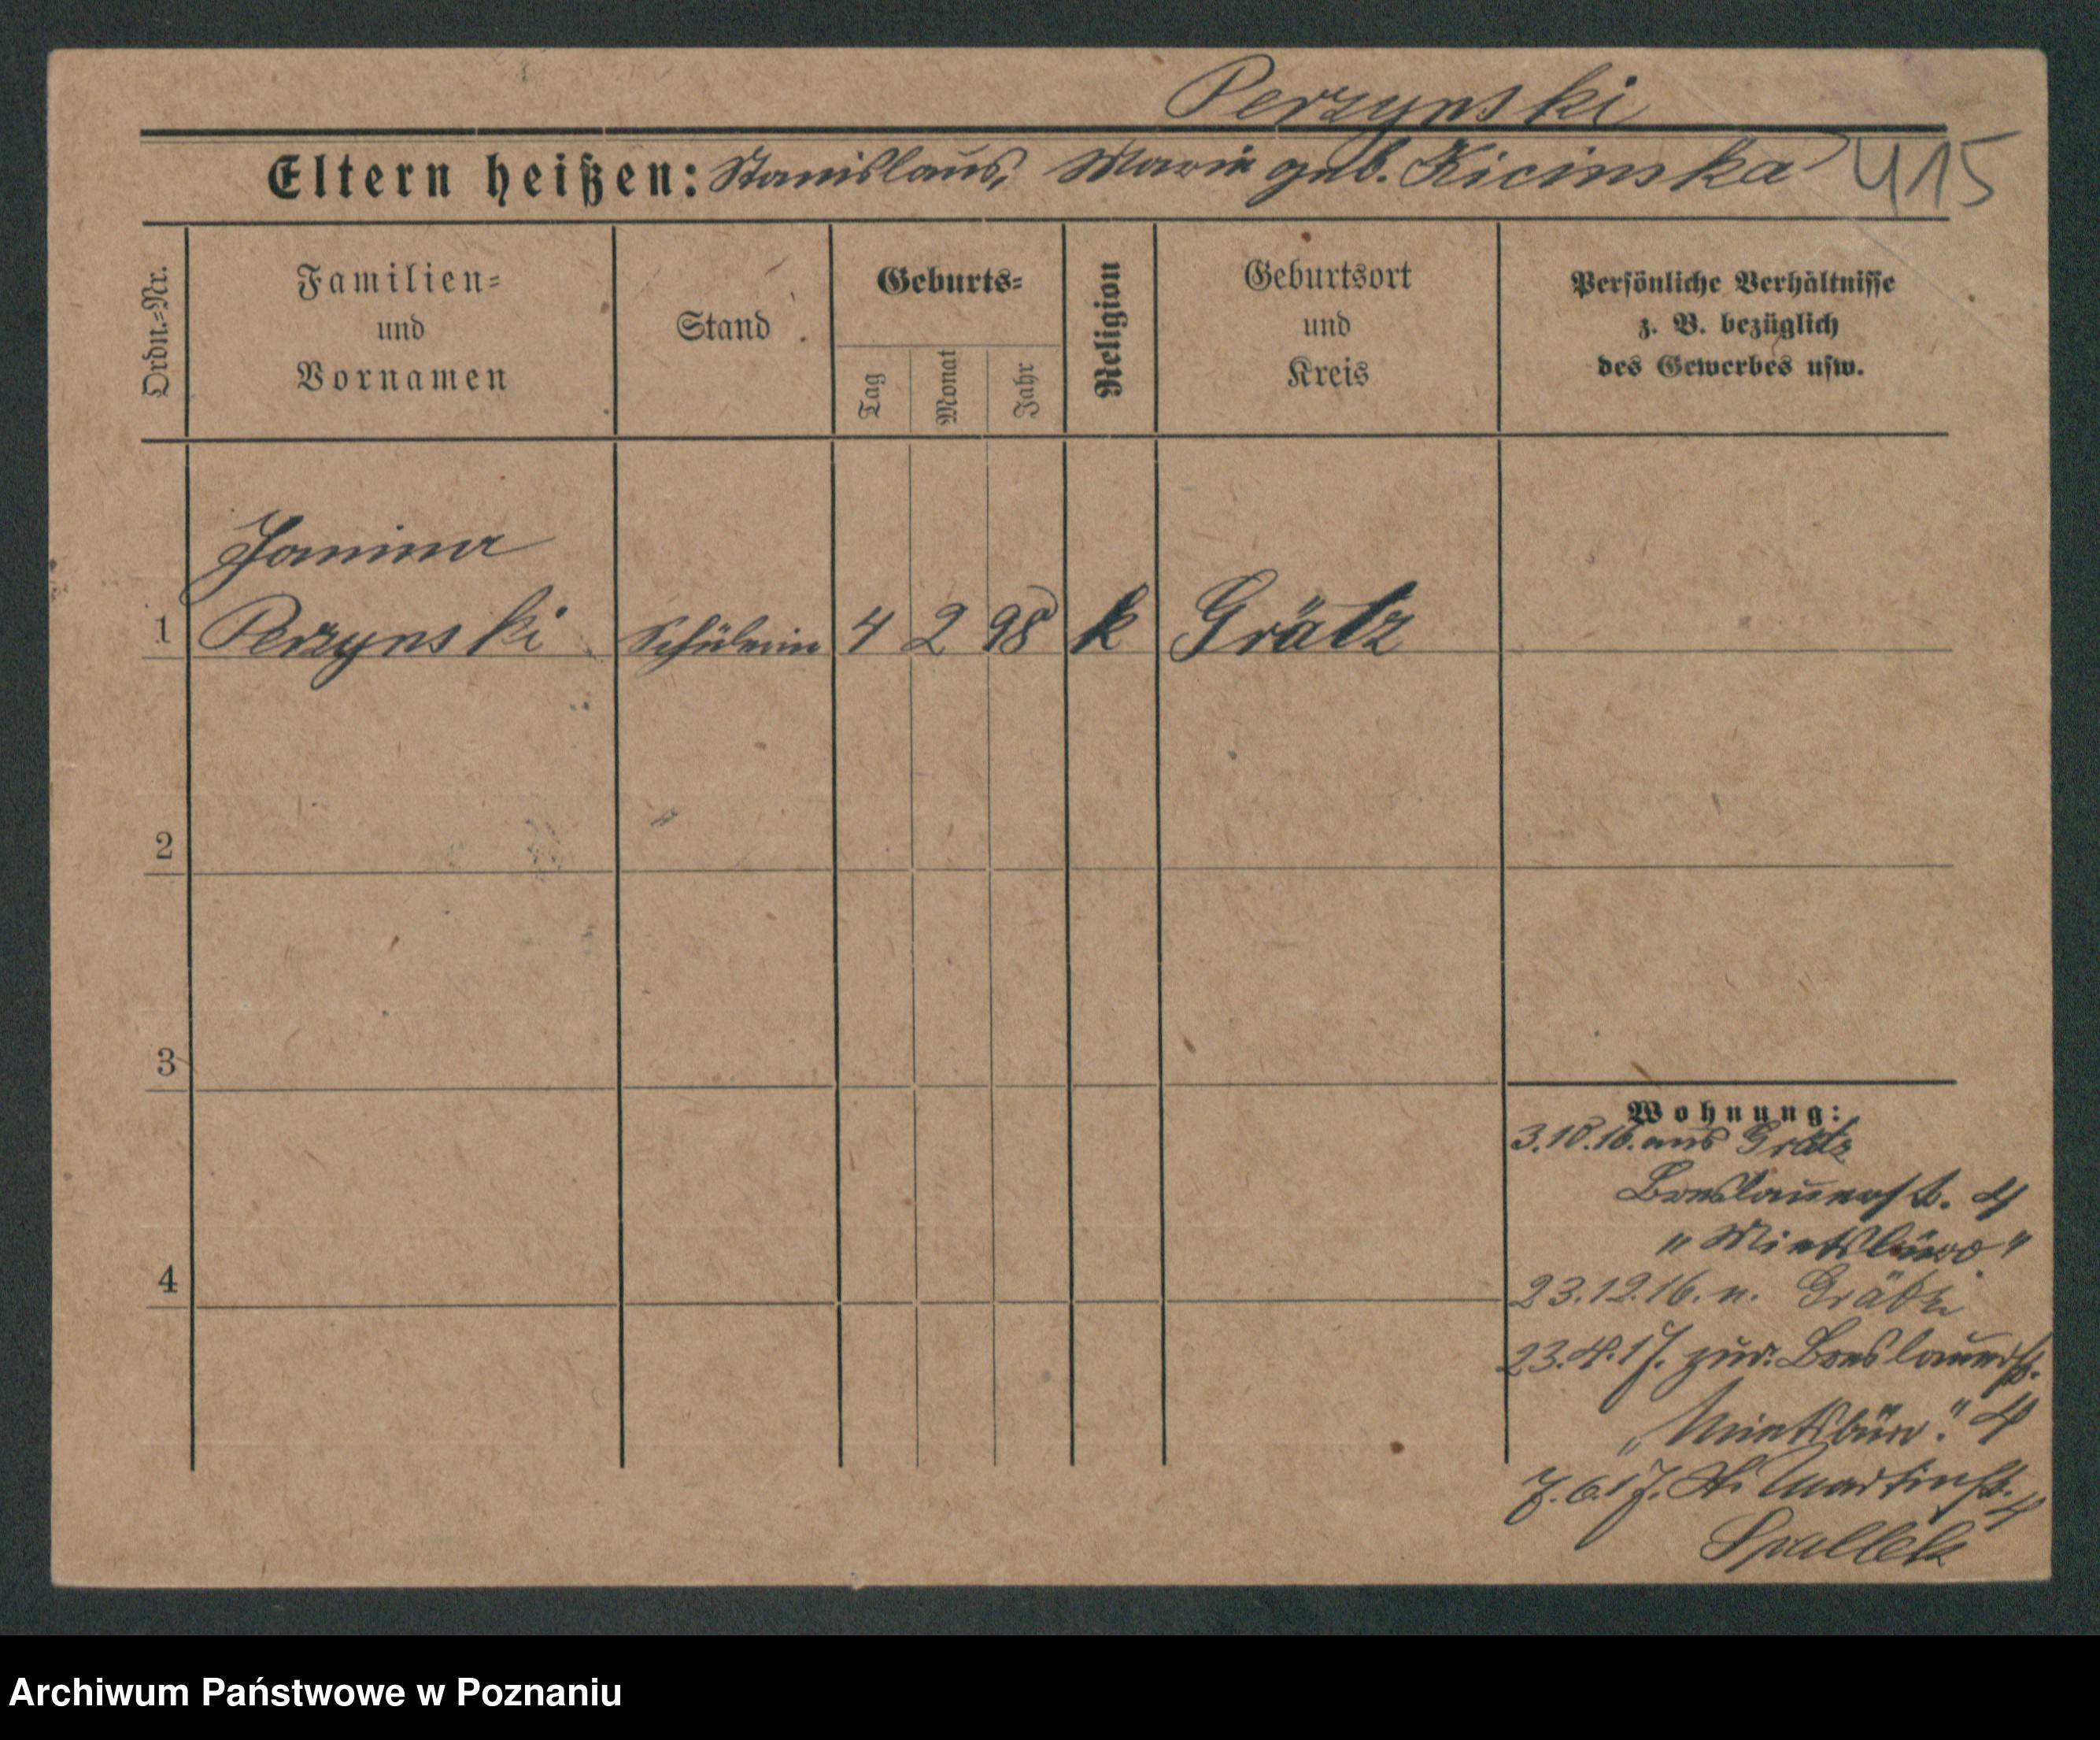 Perzynski
Eltern heißen: Stanislaus, Marie geb. Kicinska 415
Ordn.=Nr.
Familien=
und
Vornamen
Stand
Geburts=
Tag
Monat
Jahr
Religion
Geburtsort
und
Kreis
Persönliche Verhältnisse
z. B. bezüglich
des Gewerbes usw.
Janina
1 Perzynski Schülerin 4 2 98 k Grätz
2
3
4
Wohnung:
3.10.16. aus Grätz
Breslauerst. 4
"Mietsbüro"
23.12.16. n. Grätz
23.4.17. zur. Breslauerst.
"Mietsbüro". 4
7.6.17. St. Martinst. 4
Spallek
Archiwum Państwowe w Poznaniu